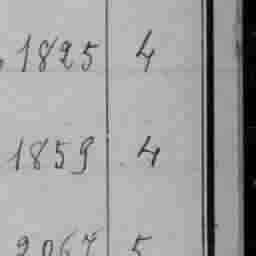 1825 4
1859 4
2067 5